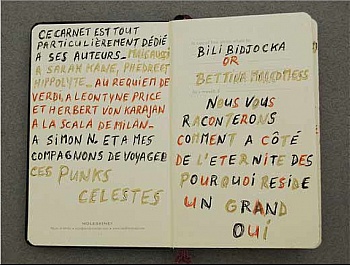 CE CARNET EST TOUT
PARTICULIÈREMENT DÉDIÉ
A SES AUTEURS_
A SARAH KANE, PHEDRE ET
HIPPOLYTE_ AU REQUIEM DE
VERDI, A LEONTYNE PRICE
ET HERBERT VON KARAJAN
A LA SCALA DE MILAN_
A SIMON N. ET A MES
COMPAGNONS DE VOYAGE
CES PUNKS
CELESTES
MOLESKINE
BILI BIDJOCKA
OR
BETTINA
NOUS VOUS
RACONTERONS
COMMENT A CÔTÉ
DE L'ETERNITE DES
POURQUOI RESIDE
UN GRAND
OUI